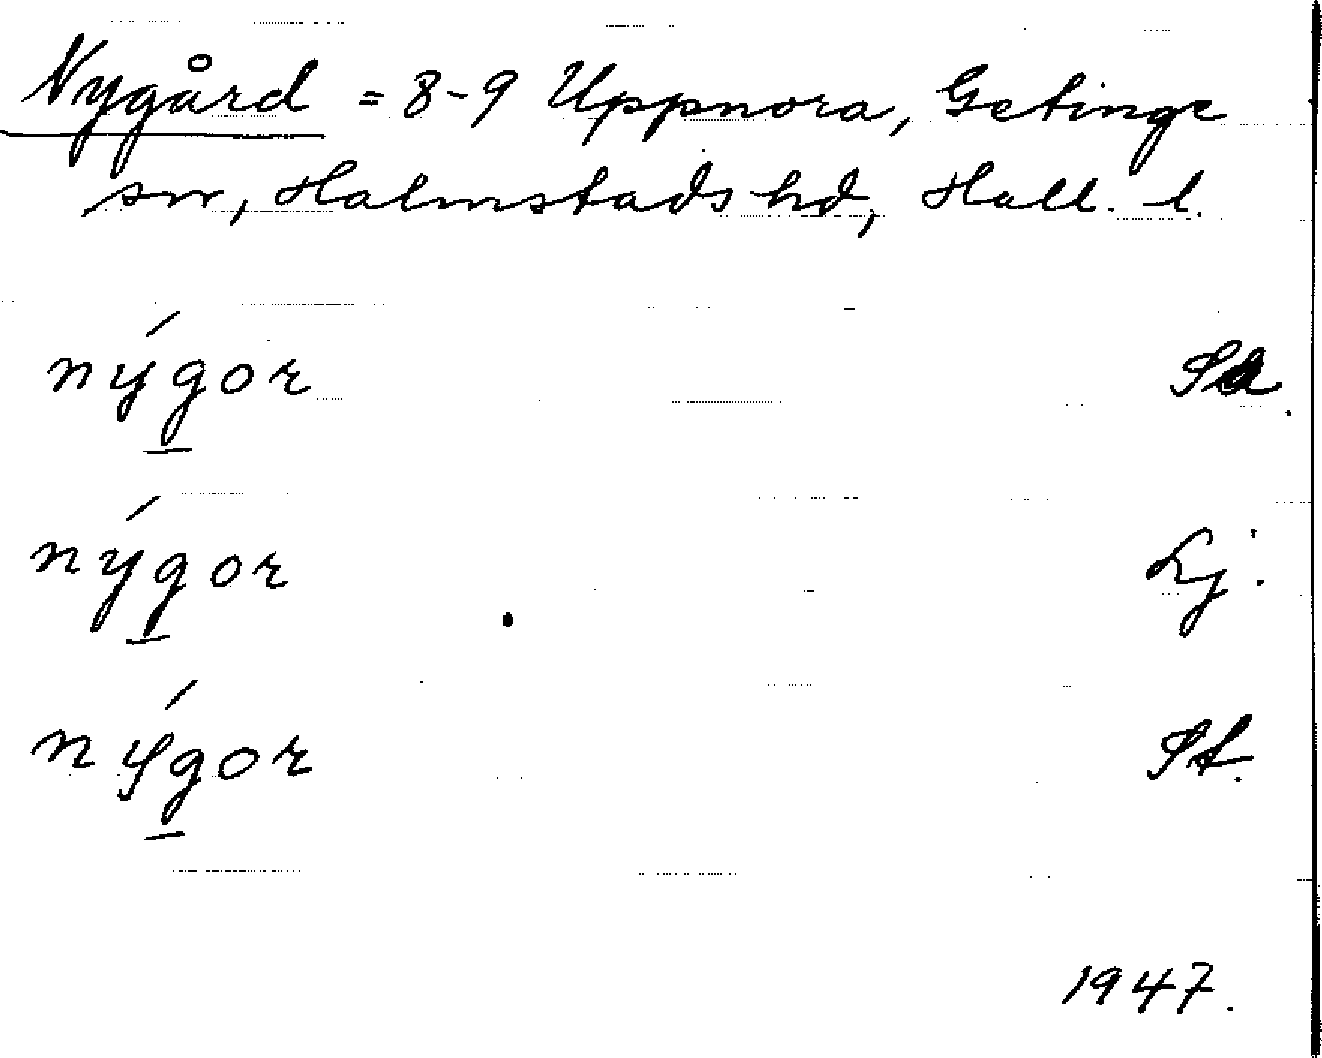 Nygård = 8-9 Uppnora, Getinge
sn, Halmstads hd, Hall. l.
nýgor Sa.
nýgor Lj.
nýgor St.
1947.